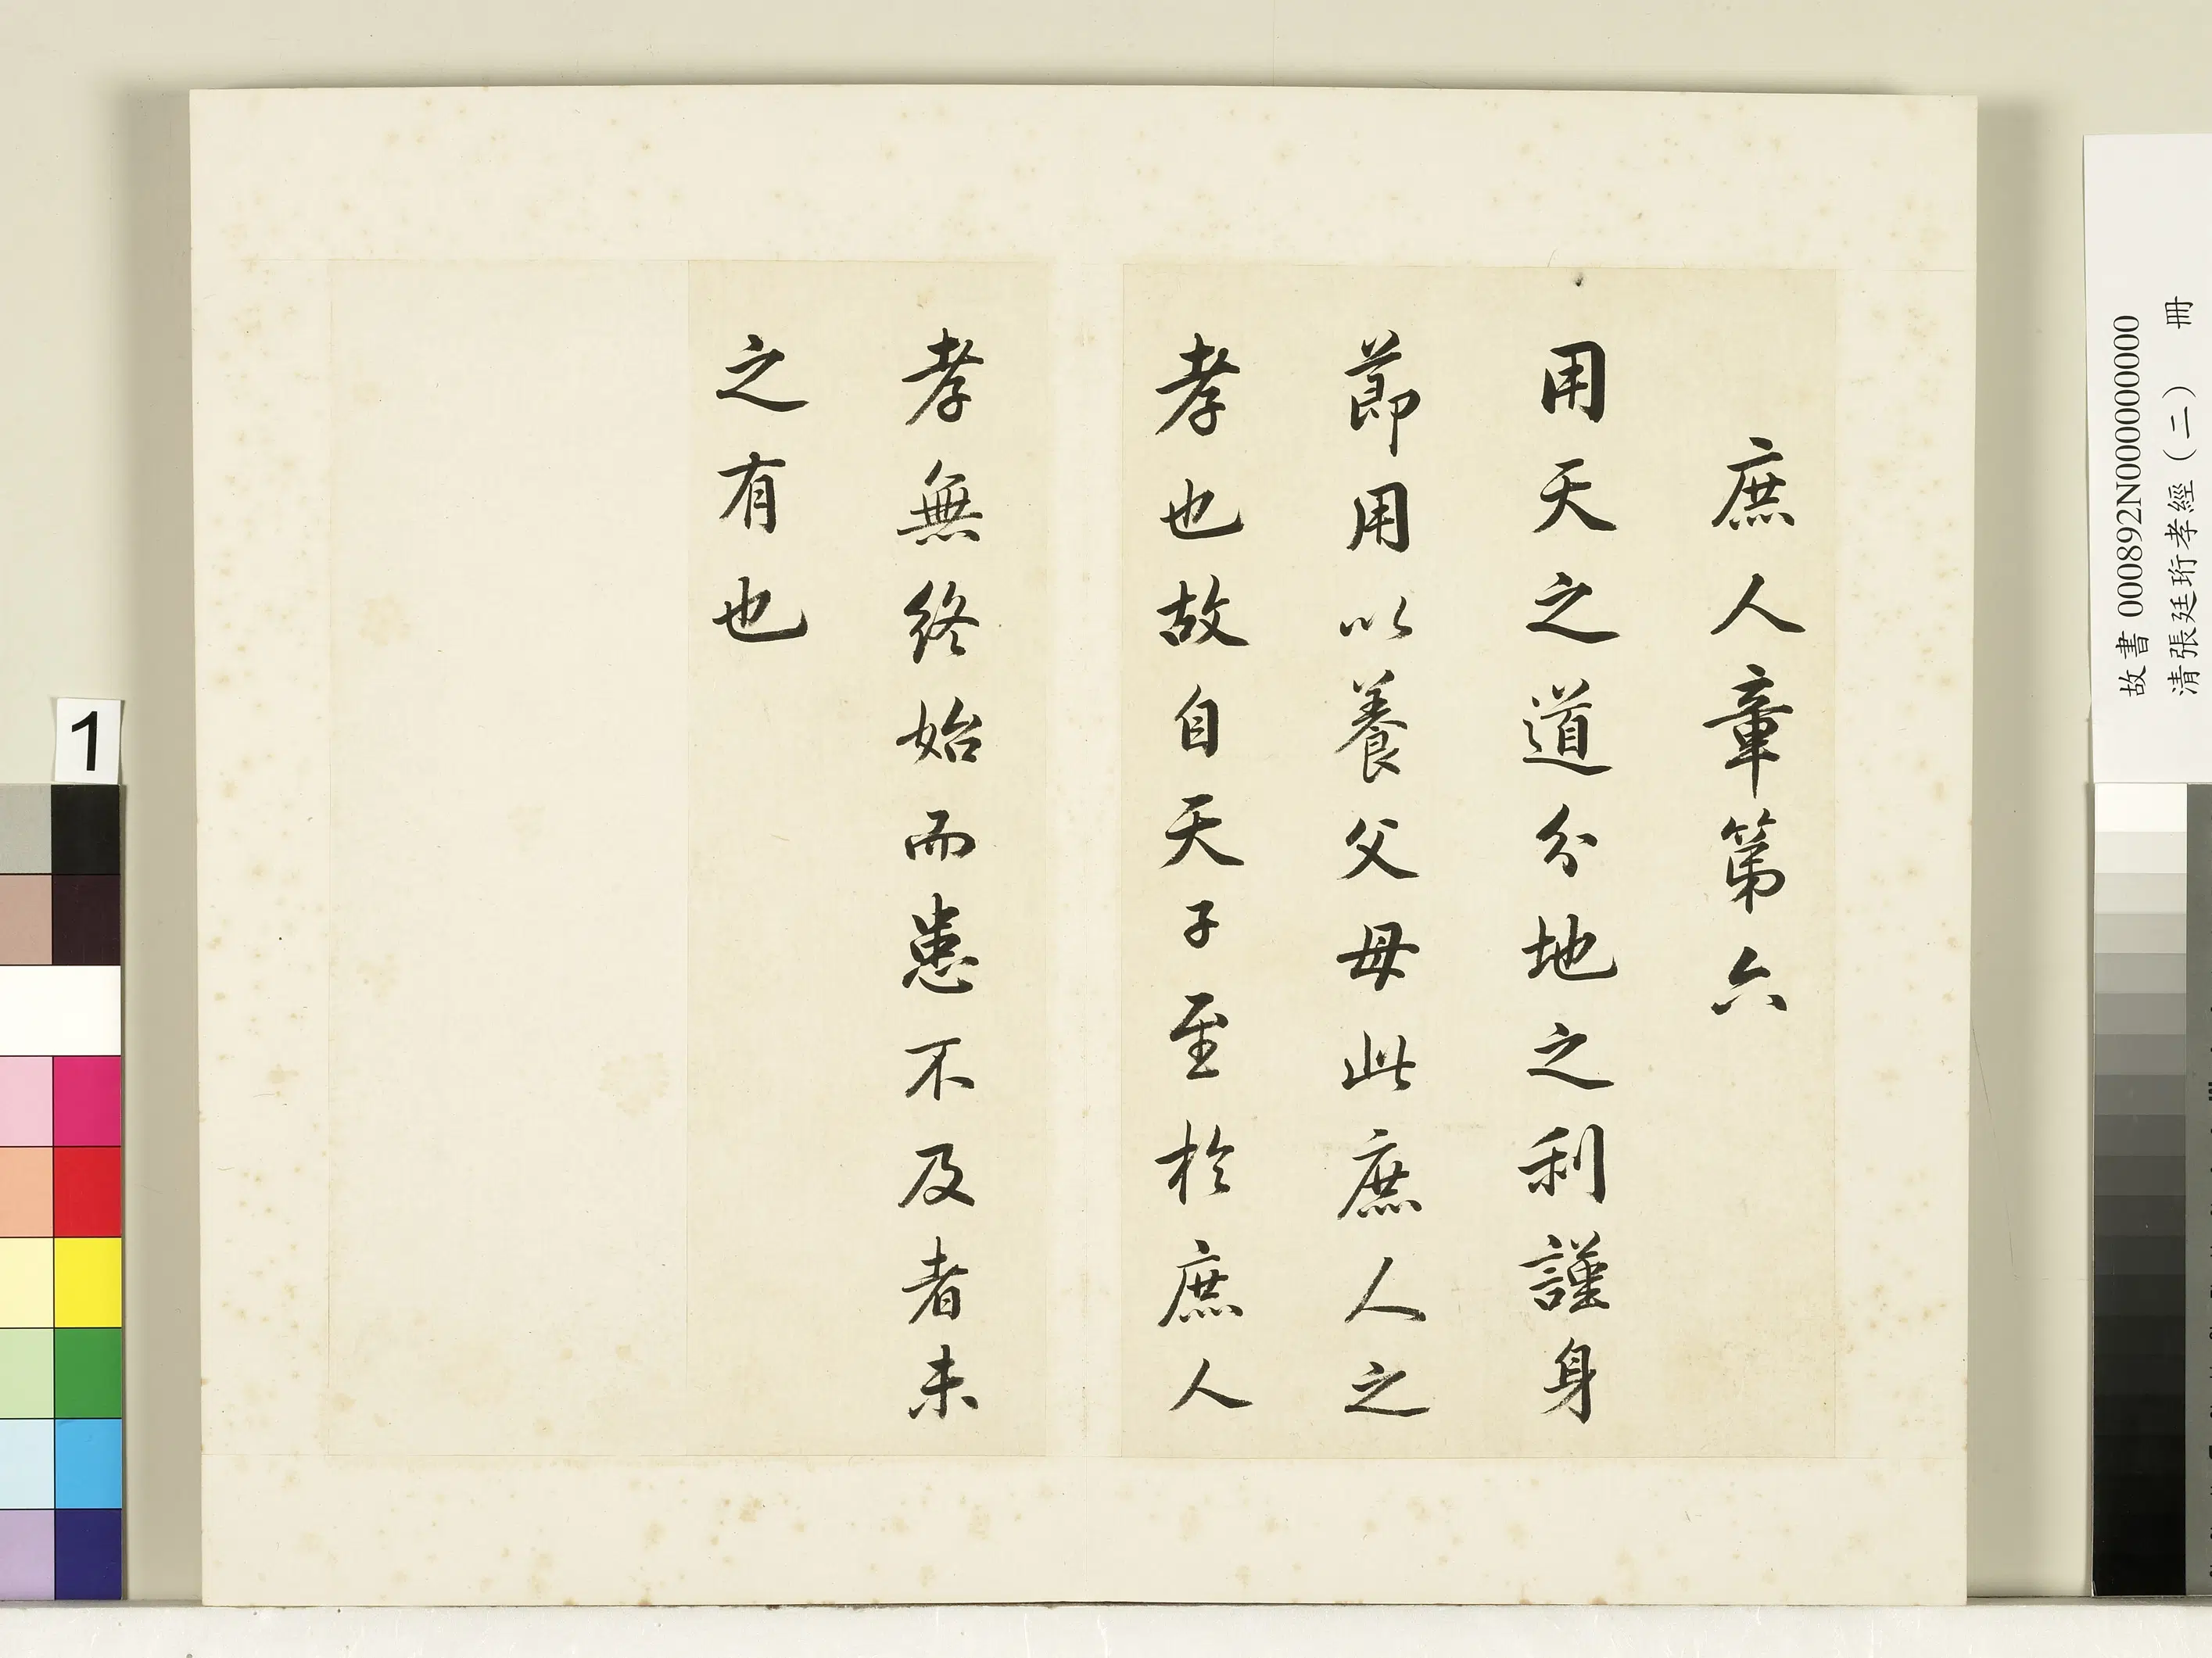 庶人章第六
用天之道分地之利謹身
節用以養父母此庶人之
孝也故自天子至於庶人
孝無終始而患不及者未
之有也
故書 000892N000000000
清張廷珩孝經（二） 冊
1